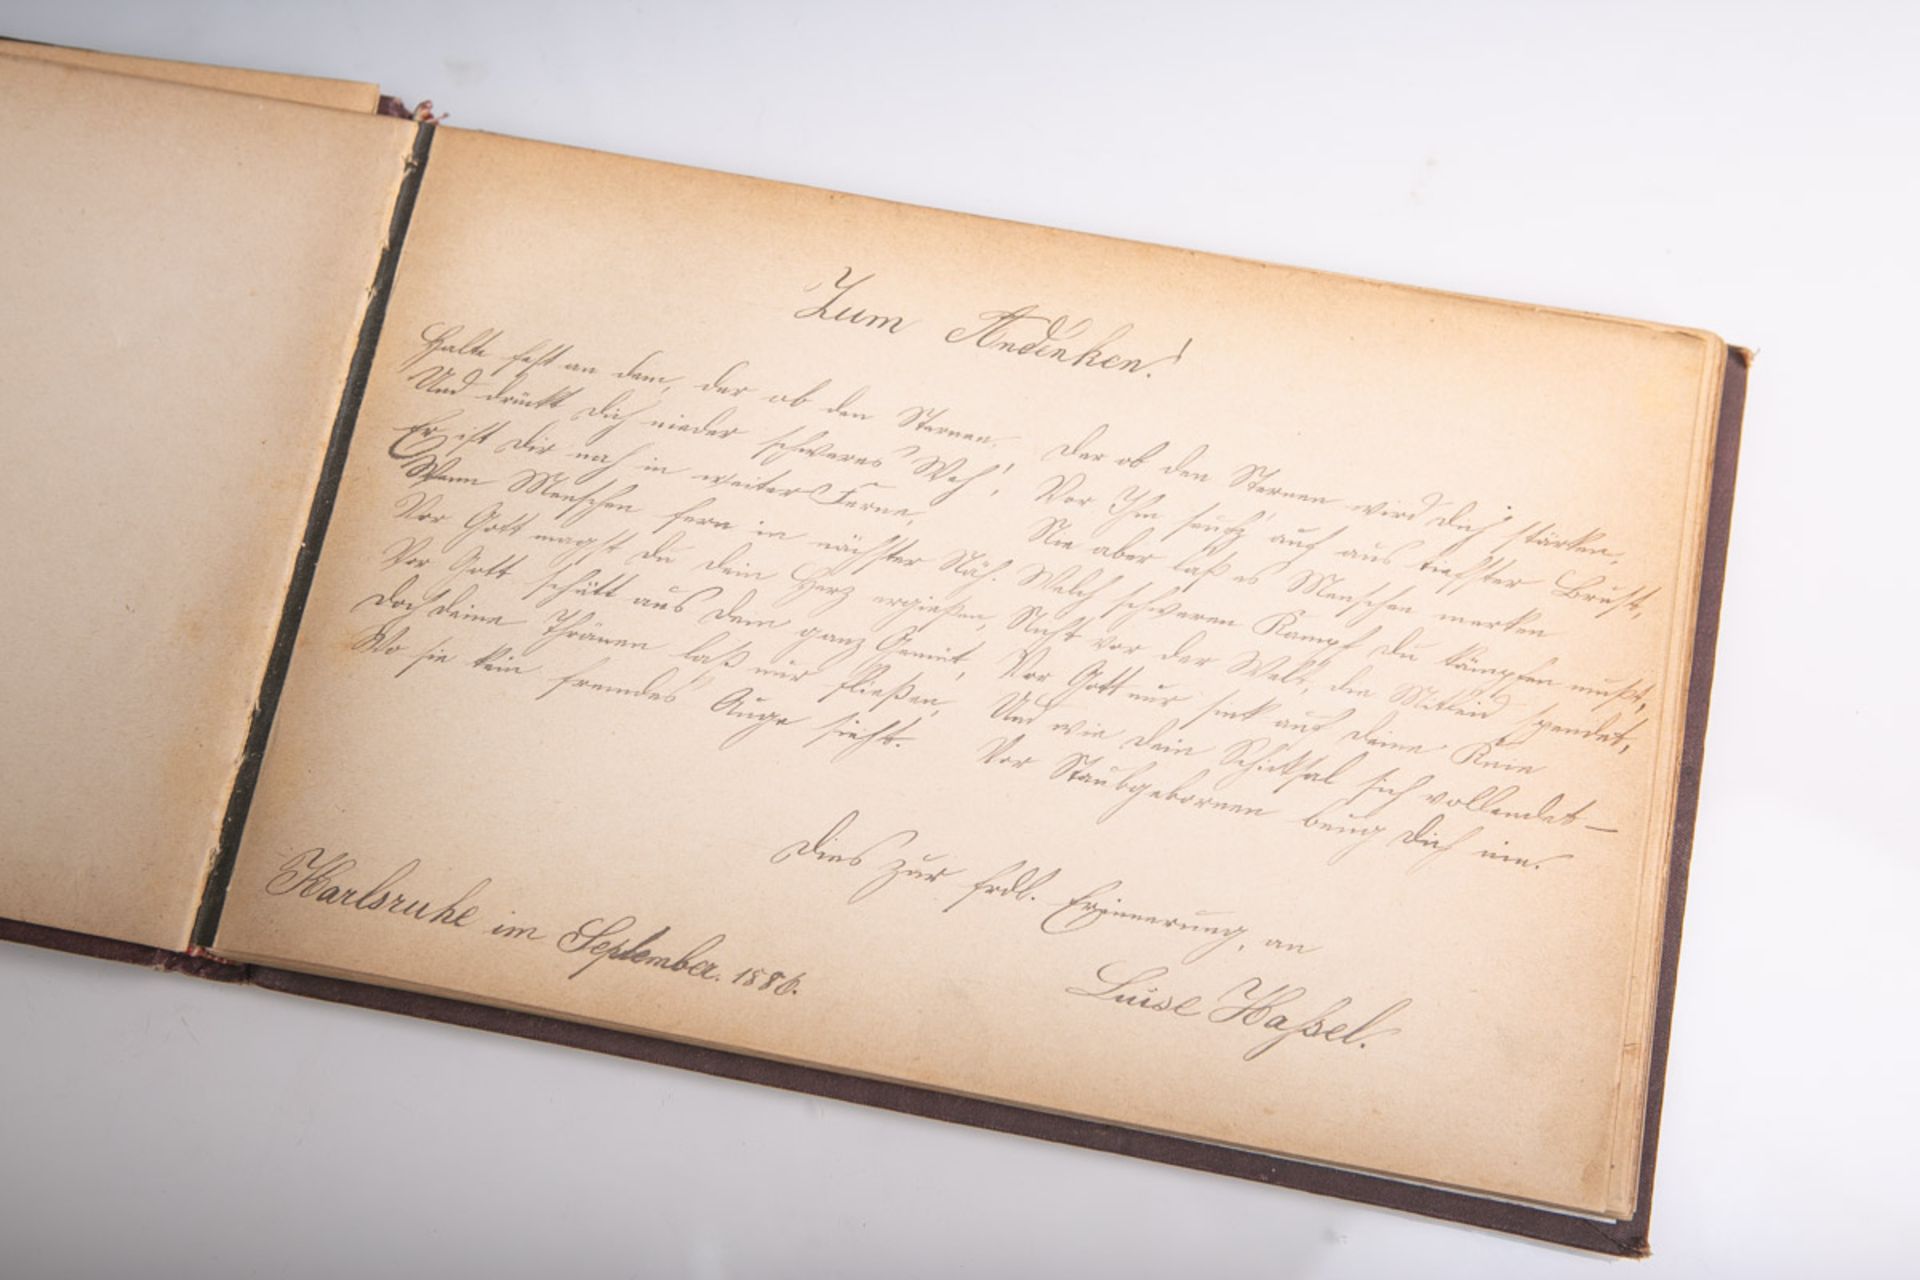 Zum Andenken!
Halte fest an dem, der ob den Sternen,
Und drückt Dich nieder schweres Weh!
Er ist Dir nah in weiter Ferne,
Wenn Menschen fern in nächster Näh.
Vor Gott magst Du Dein Herz ergießen,
Vor Gott schütt aus Dein ganz Gemüt,
Doch deine Thränen laß nur fließen,
Wo sie kein fremdes Auge sieht.
Der ob den Sternen wird Dich stärken,
Vor Ihm seufz' auf aus tiefster Brust,
Nie aber laß es Menschen merken
Welch schweren Kampf Du kämpfen mußt,
Nicht vor der Welt, die Mitleid spendet,
Vor Gott nur sink auf Deine Knie
Und wie Dein Schicksal sich vollendet –
Vor Staubgebornen beug Dich nie.
Dies zur frdl. Erinnerung, an
Luise Haßel.
Karlsruhe im September. 1886.